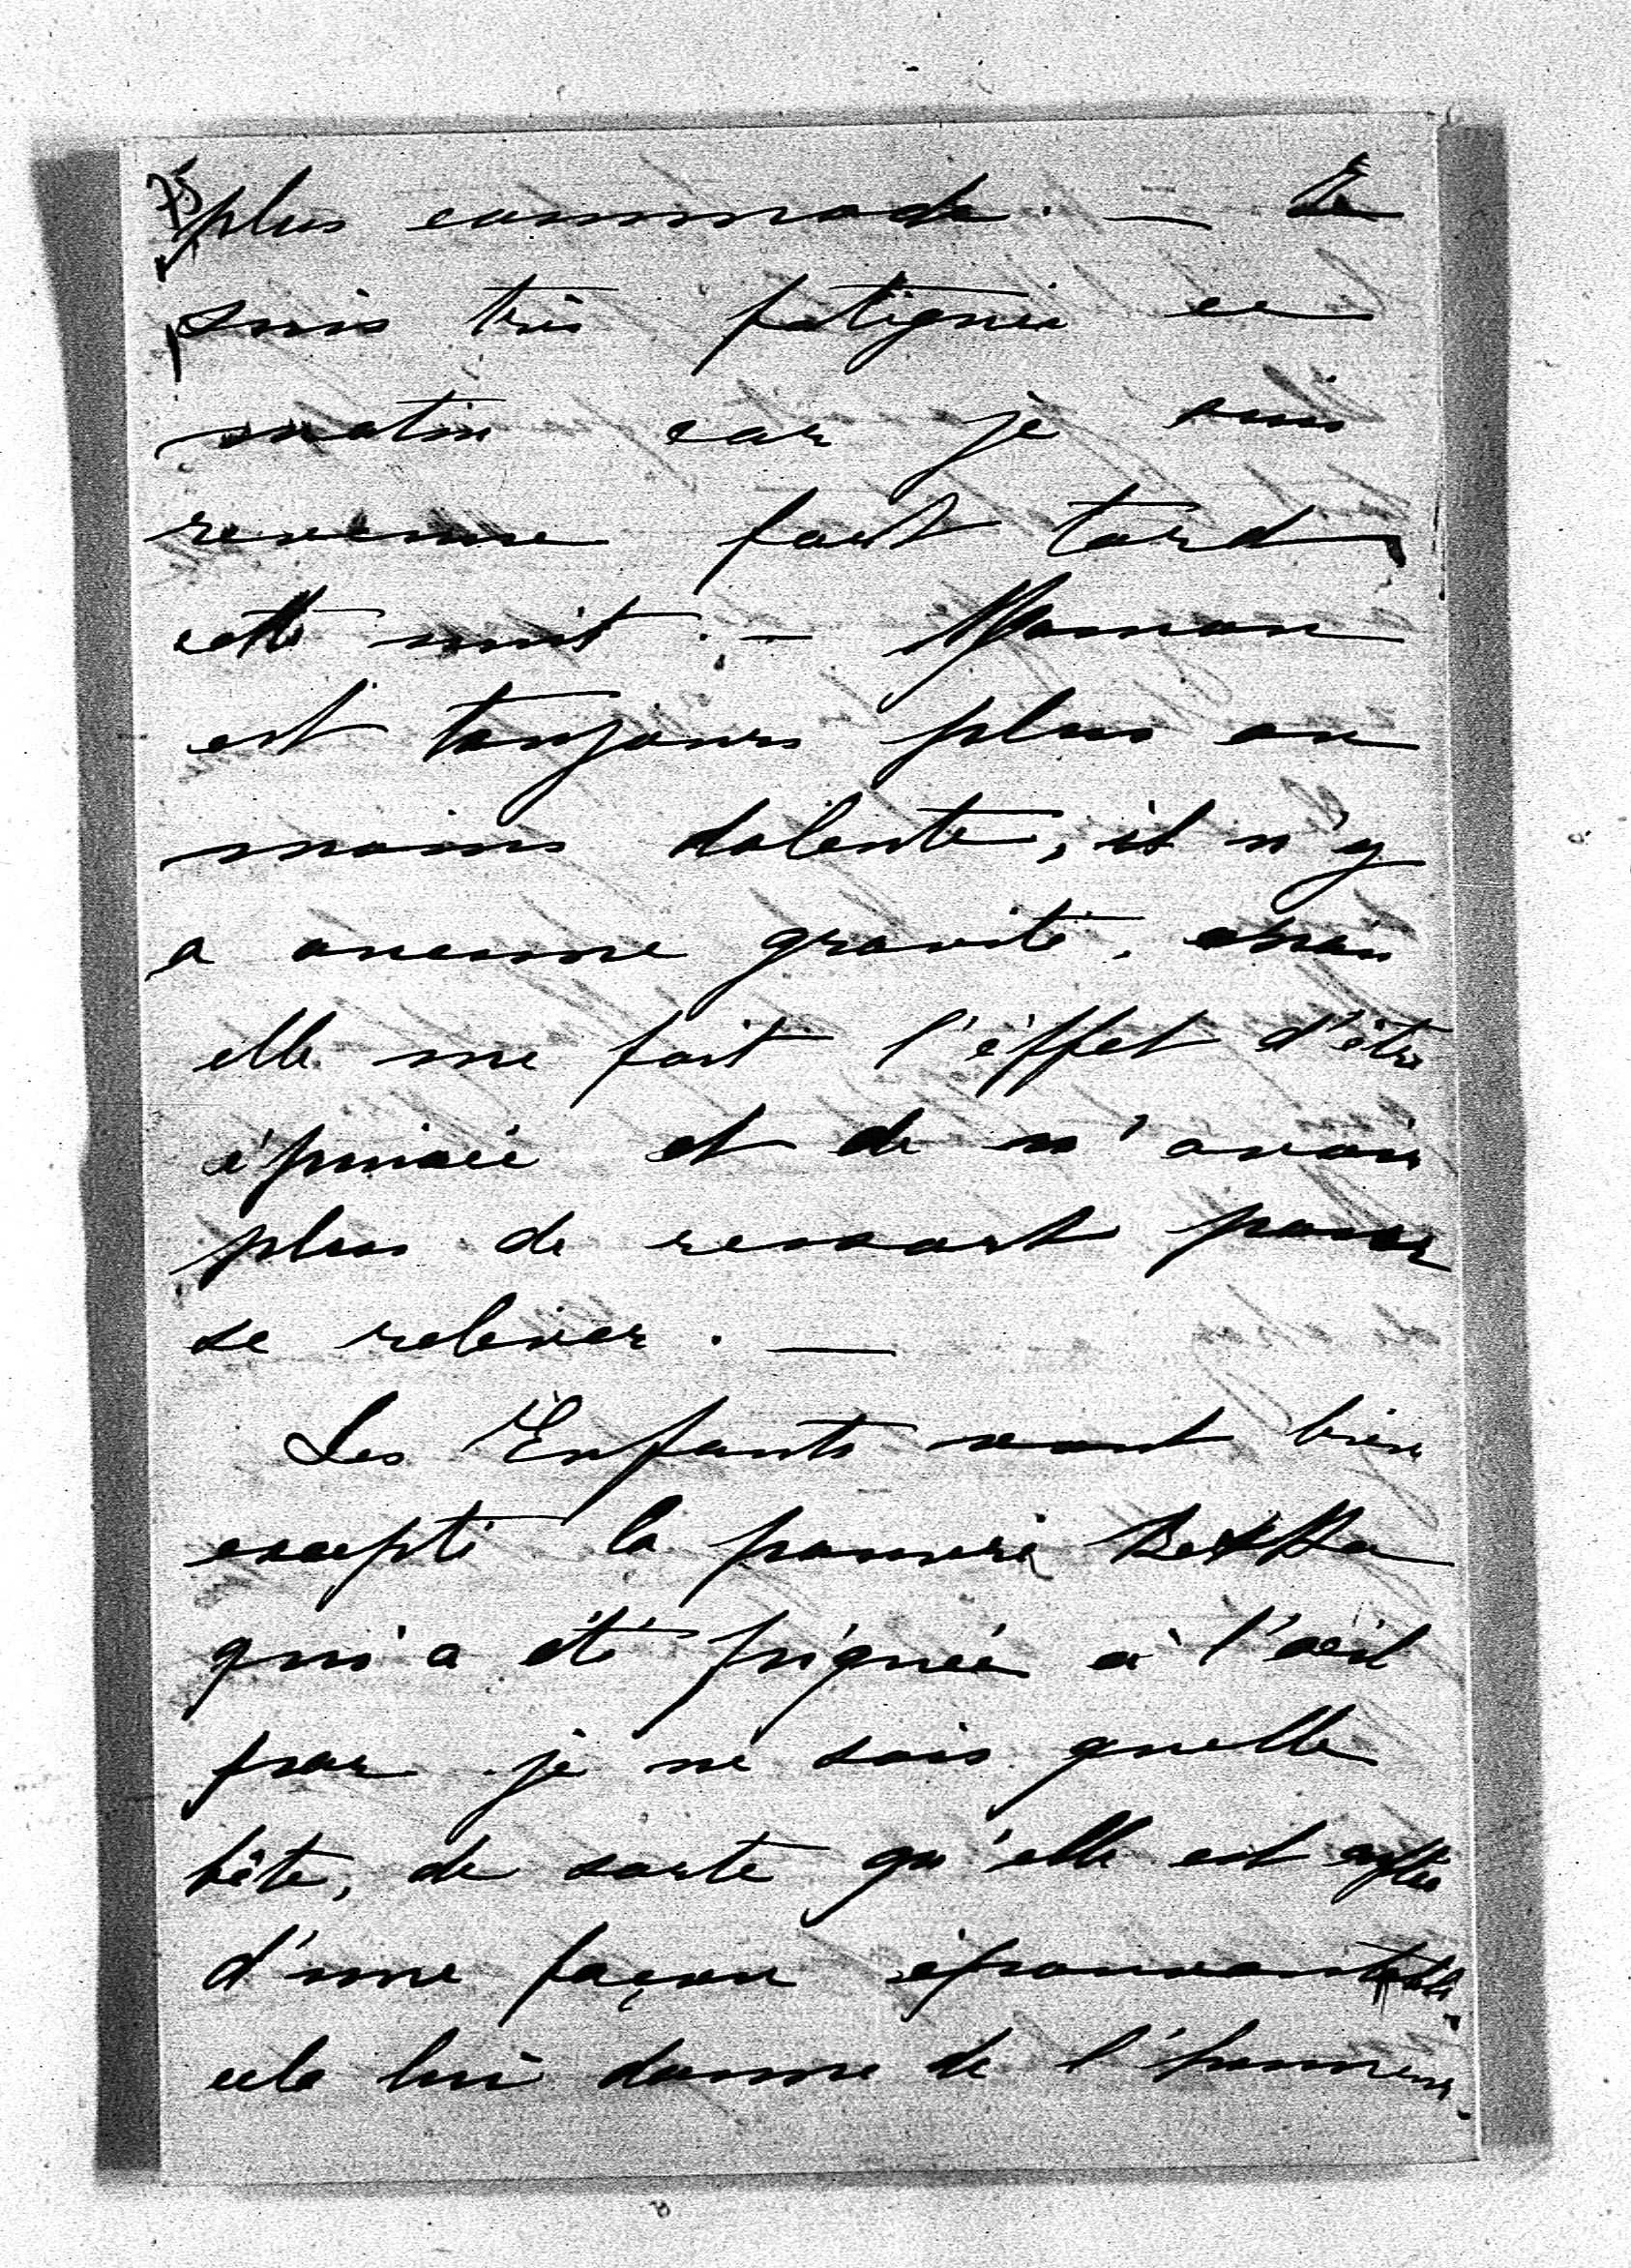 75
plus commode. — Je
suis très fatiguée ce
matin car je suis
revenue fort tard
cette nuit. — Maman
est toujours plus ou
moins dolente, il n'y
a aucune gravité, mais
elle me fait l'éffet d'être
épuisée et de n'avoir
plus de ressort pour
se relever. —
Les Enfants vont bien
excepté la pauvre
qui a été piquée à l'œil
par je ne sais quelle
bête, de sorte qu'elle est enflée
d'une façon épouvantable,
cela lui donne de l'humeur.